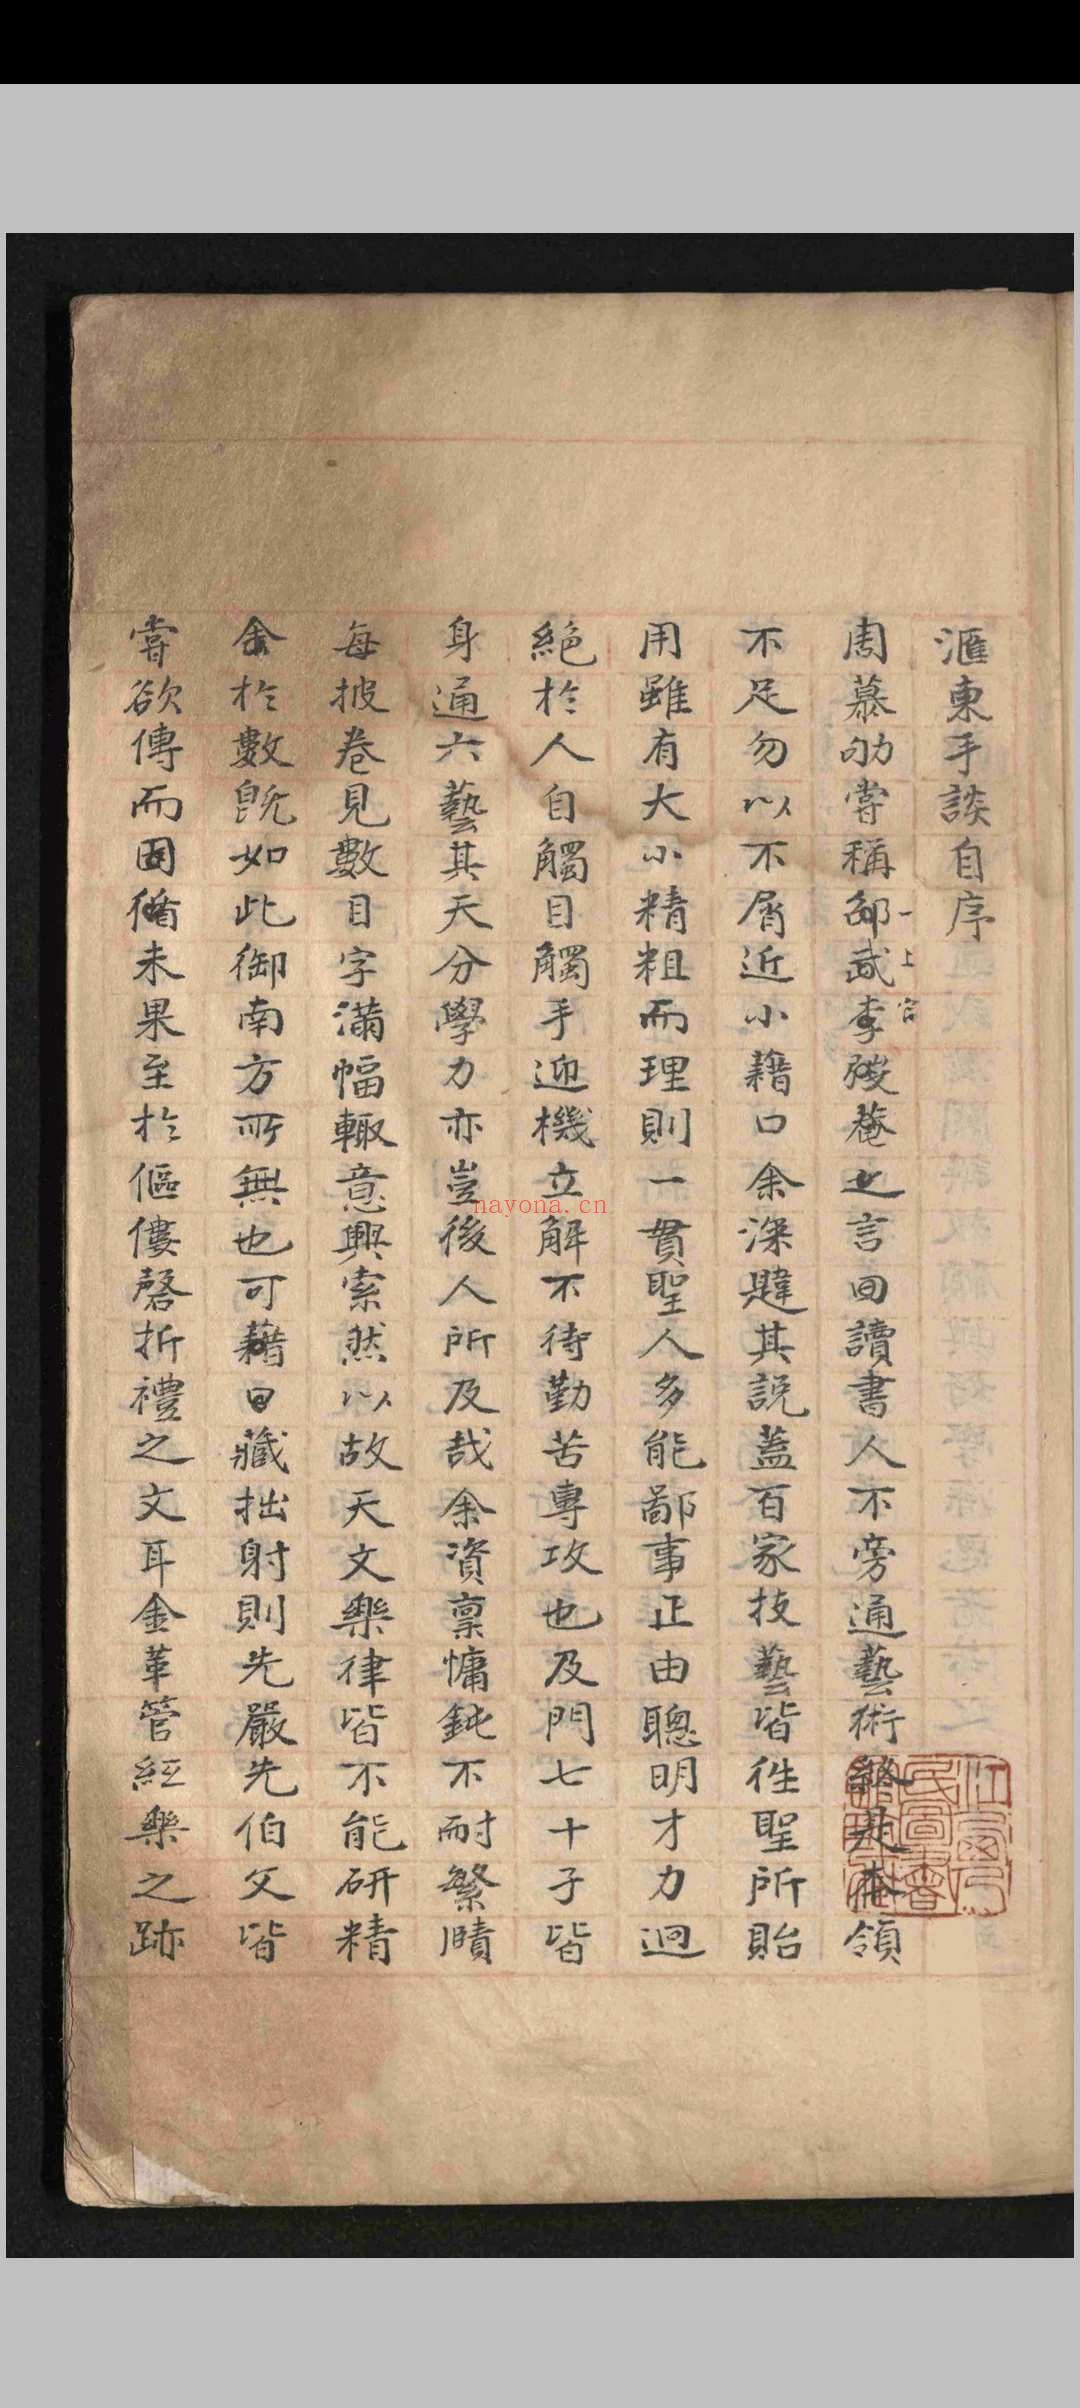 滙東手談自序
周慕劬嘗稱邵武李𥻘菴之言曰讀書人不旁通藝術終是本領
一上官
不足勿以不屑近小藉口余深韙其説蓋百家技藝皆徃聖所貽
用雖有大小精粗而理則一貫聖人多能鄙事正由聰明才力迥
絶於人自觸目觸手迎機立解不待勤苦專攻也及門七十子皆
身通六藝其天分學力亦豈後人所及哉余資禀慵鈍不耐繁賾
每披卷見數目字滿幅輙意興索然以故天文樂律皆不能研精
余於數既如此御南方所無也可藉口藏拙射則先嚴先伯父皆
嘗欲傳而因循未果至於傴僂磬折禮之文耳金革管絃樂之跡
nayona.cn